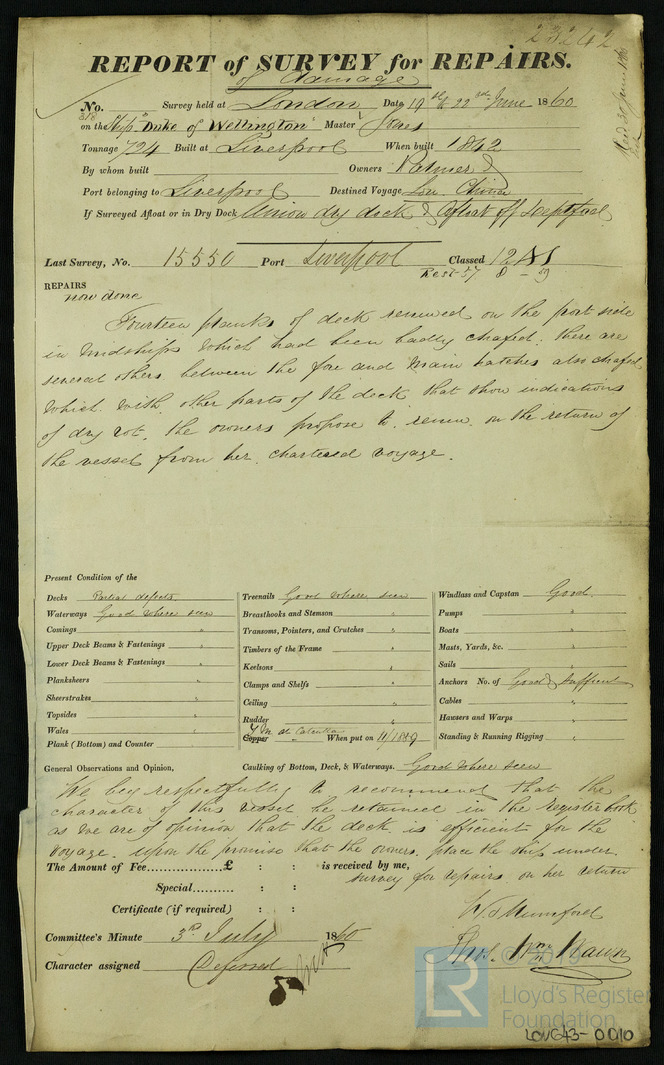 23242
REPORT of SURVEY for REPAIRS.
of damage
No. 318 Survey held at London Date 19th & 22nd June 1860
on the Ship "Duke of Wellington" Master Jones
Tonnage 724 Built at Liverpool When built 1842
By whom built Owners Palmer &
Port belonging to Liverpool Destined Voyage China
If Surveyed Afloat or in Dry Dock Union dry dock & Afloat off Deptford
Last Survey, No. 15550 Port Liverpool Classed 12 A1
Rest-57 8-59
REPAIRS
now done
Fourteen planks of deck renewed on the port side
in midships which had been badly chafed; there are
several others between the fore and main hatches also chafed
which with other parts of the deck that show indications
of dry rot, the owners propose to renew on the return of
the vessel from her chartered voyage.
Present Condition of the
Decks Partial defects
Waterways Good where seen
Comings "
Upper Deck Beams & Fastenings "
Lower Deck Beams & Fastenings "
Planksheers "
Sheerstrakes "
Topsides "
Wales "
Plank (Bottom) and Counter "
Treenails Good where seen
Breasthooks and Stemson "
Transoms, Pointers, and Crutches "
Timbers of the Frame "
Keelsons "
Clamps and Shelfs "
Ceiling "
Rudder "
Y. M. at Calcutta
Copper " When put on 11/1859
Windlass and Capstan Good
Pumps "
Boats "
Masts, Yards, &c. "
Sails "
Anchors No. of Good & sufficient
Cables "
Hawsers and Warps "
Standing & Running Rigging "
General Observations and Opinion, Caulking of Bottom, Deck, & Waterways. Good where seen
We beg respectfully to recommend that the
character of this vessel be retained in the register book
as we are of opinion that the deck is efficient for the
voyage upon the promise that the owners place the ship under
survey for repairs on her return
The Amount of Fee..................£ : : is received by me,
Special.......... : :
Certificate (if required) : :
W. Mumford
Committee's Minute 3rd July 1860
Thos. Wm. Wawn
Character assigned Deferred
© 2019
LR Lloyd's Register
Foundation
LON643-0010